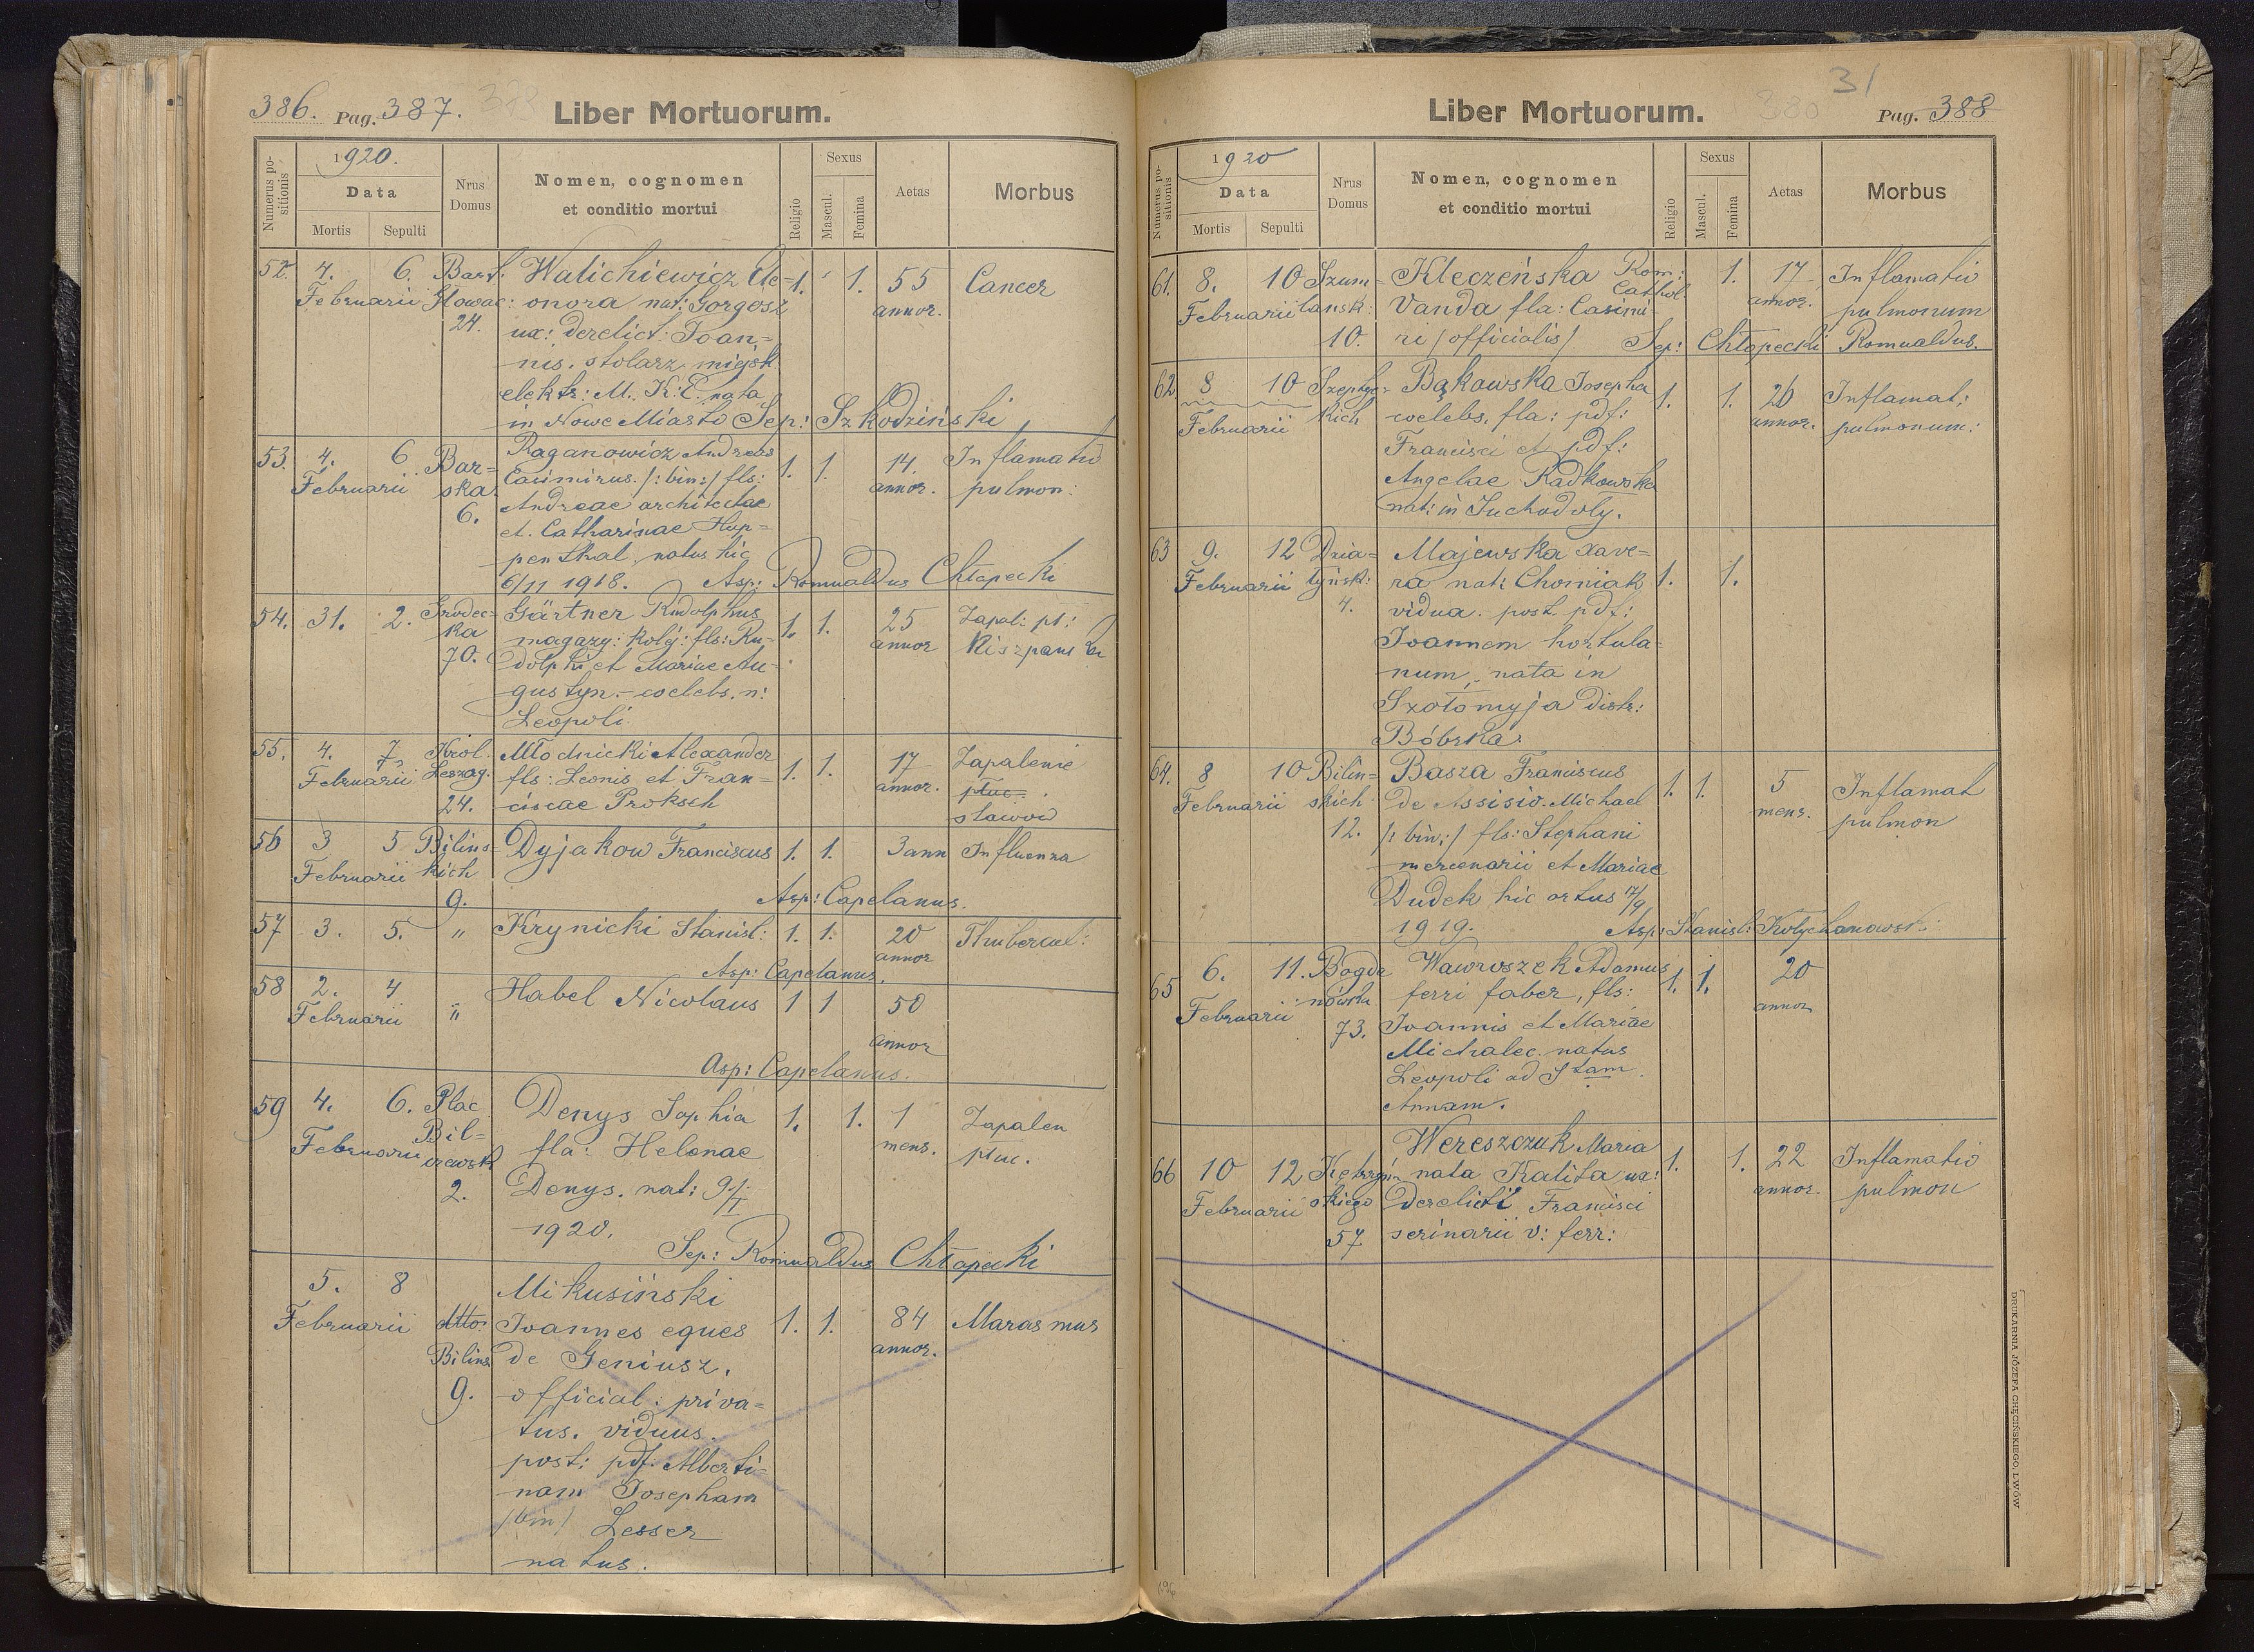 386. Pag. 387.
Liber Mortuorum.
Numerus positionis
1920.
Data
Mortis
Sepulti
Nrus Domus
Nomen, cognomen
et conditio mortui
Religio
Sexus
Mascul.
Femina
Aetas
Morbus
52. 4. 6. Bart: Walichiewicz Ele= 1. 1. 55 Cancer
Februarii Głowac: onora nat: Gorgosz annor.
24. ux: derelict: Joan=
nis. stolarz miejsk.
elektr: M. K. E. nata
in Nowe Miasto Sep: Szkodziński
53. 4. 6 Bar= Raganowicz Andreas 1. 1. 14. Inflamatio
Februarii ska Casimirus. /: bin:/ fls: annor. pulmon:
6. Andreae architectae
et Catharinae Hup=
penthal, natus hic
6/11 1918. Asp: Romualdus Chłapecki
54. 31. 2. Grodec= Gärtner Rudolphus 1. 1. 25 Zapal: pł:
ka magazy: kolej: fls: Ru= annor Hiszpank
70. dolphi et Mariae Au=
gustyn. coelebs. n:
Leopoli
55. 4. 7. Król. Młodnicki Alexander 1. 1. 17 Zapalenie
Februarii Leszcg. fls: Leonis et Fran= annor. płuc.
24. ciscae Proksch stawów
56 3 5 Bilińs= Dyjakow Franciscus 1. 1. 3 ann Influenza
Februarii kich
9. Asp: Capelanus.
57 3. 5. " Krynicki Stanisl: 1. 1. 20 Thubercul:
annor
Asp: Capelanus.
58 2. 4 Habel Nicolaus 1 1 50
Februarii "
annor
Asp: Capelanus.
59 4. 6. Plac Denys Sophia 1. 1. 1 Zapalen
Februarii Bil= fla: Helenae mens. płuc.
czewsk
2. Denys. nat: 9/I
1920.
Sep: Romualdus Chłapecki
5. 8 Mikusiński
Februarii dtto Joannes eques 1. 1. 84 Marasmus
Bilins de Geniusz, annor.
9. official: priva=
tus. viduus.
post: pdf. Alberti=
nam Josepham
/bin/ Lesser
natus.
31
Liber Mortuorum.
380
Pag. 388
Numerus positionis
1920
Data
Mortis
Sepulti
Nrus Domus
Nomen, cognomen
et conditio mortui
Religio
Sexus
Mascul.
Femina
Aetas
Morbus
61. 8. 10 Szum= Kleczeńska Rom: Cathol. 1. 17 Inflamatio
Februarii lańsk: Vanda fla: Casimi annor. pulmonum
10. ri /officialis/ Sep: Chłapecki Romualdus.
62 8 10 Szeptyc= Bąkowska Josepha 1. 1. 26 Inflamat:
Februarii kich coelebs, fla: pdf: annor. pulmonum:
Francisci et pdf:
Angelae Radkowska
nat: in Suchodoły.
63 9. 12 Dzia= Majewska Xave= 1. 1.
Februarii łyńsk: ra nat: Chomiak
4. vidua. post. pdf:
Joannem hortula=
num, nata in
Szołomyja distr:
Bóbrka.
64. 8 10 Biliń= Basza Franciscus 1. 1. 5 Inflamat
Februarii skich de Assisio. Michael mens. pulmon
12. /: bin:/ fls: Stephani
mercenarii et Mariae
Dudek hic ortus 17/9
1919. Asp: Stanisl:
65 6. 11. Bogda Wawroszek Adamus 1. 1. 20
Februarii nówka ferri faber, fls: annor
73. Joannis et Mariae
Michalec natus
Leopoli ad Stam
Annam.
66 10 12 Kętrzyń= Wereszczuk Maria 1. 1. 22 Inflamatio
Februarii skiego nata Kalita ux: annor. pulmon
57 derelicti Francisci
scrinarii v: ferr:
196
DRUKARNIA JÓZEFA CHĘCIŃSKIEGO, LWÓW